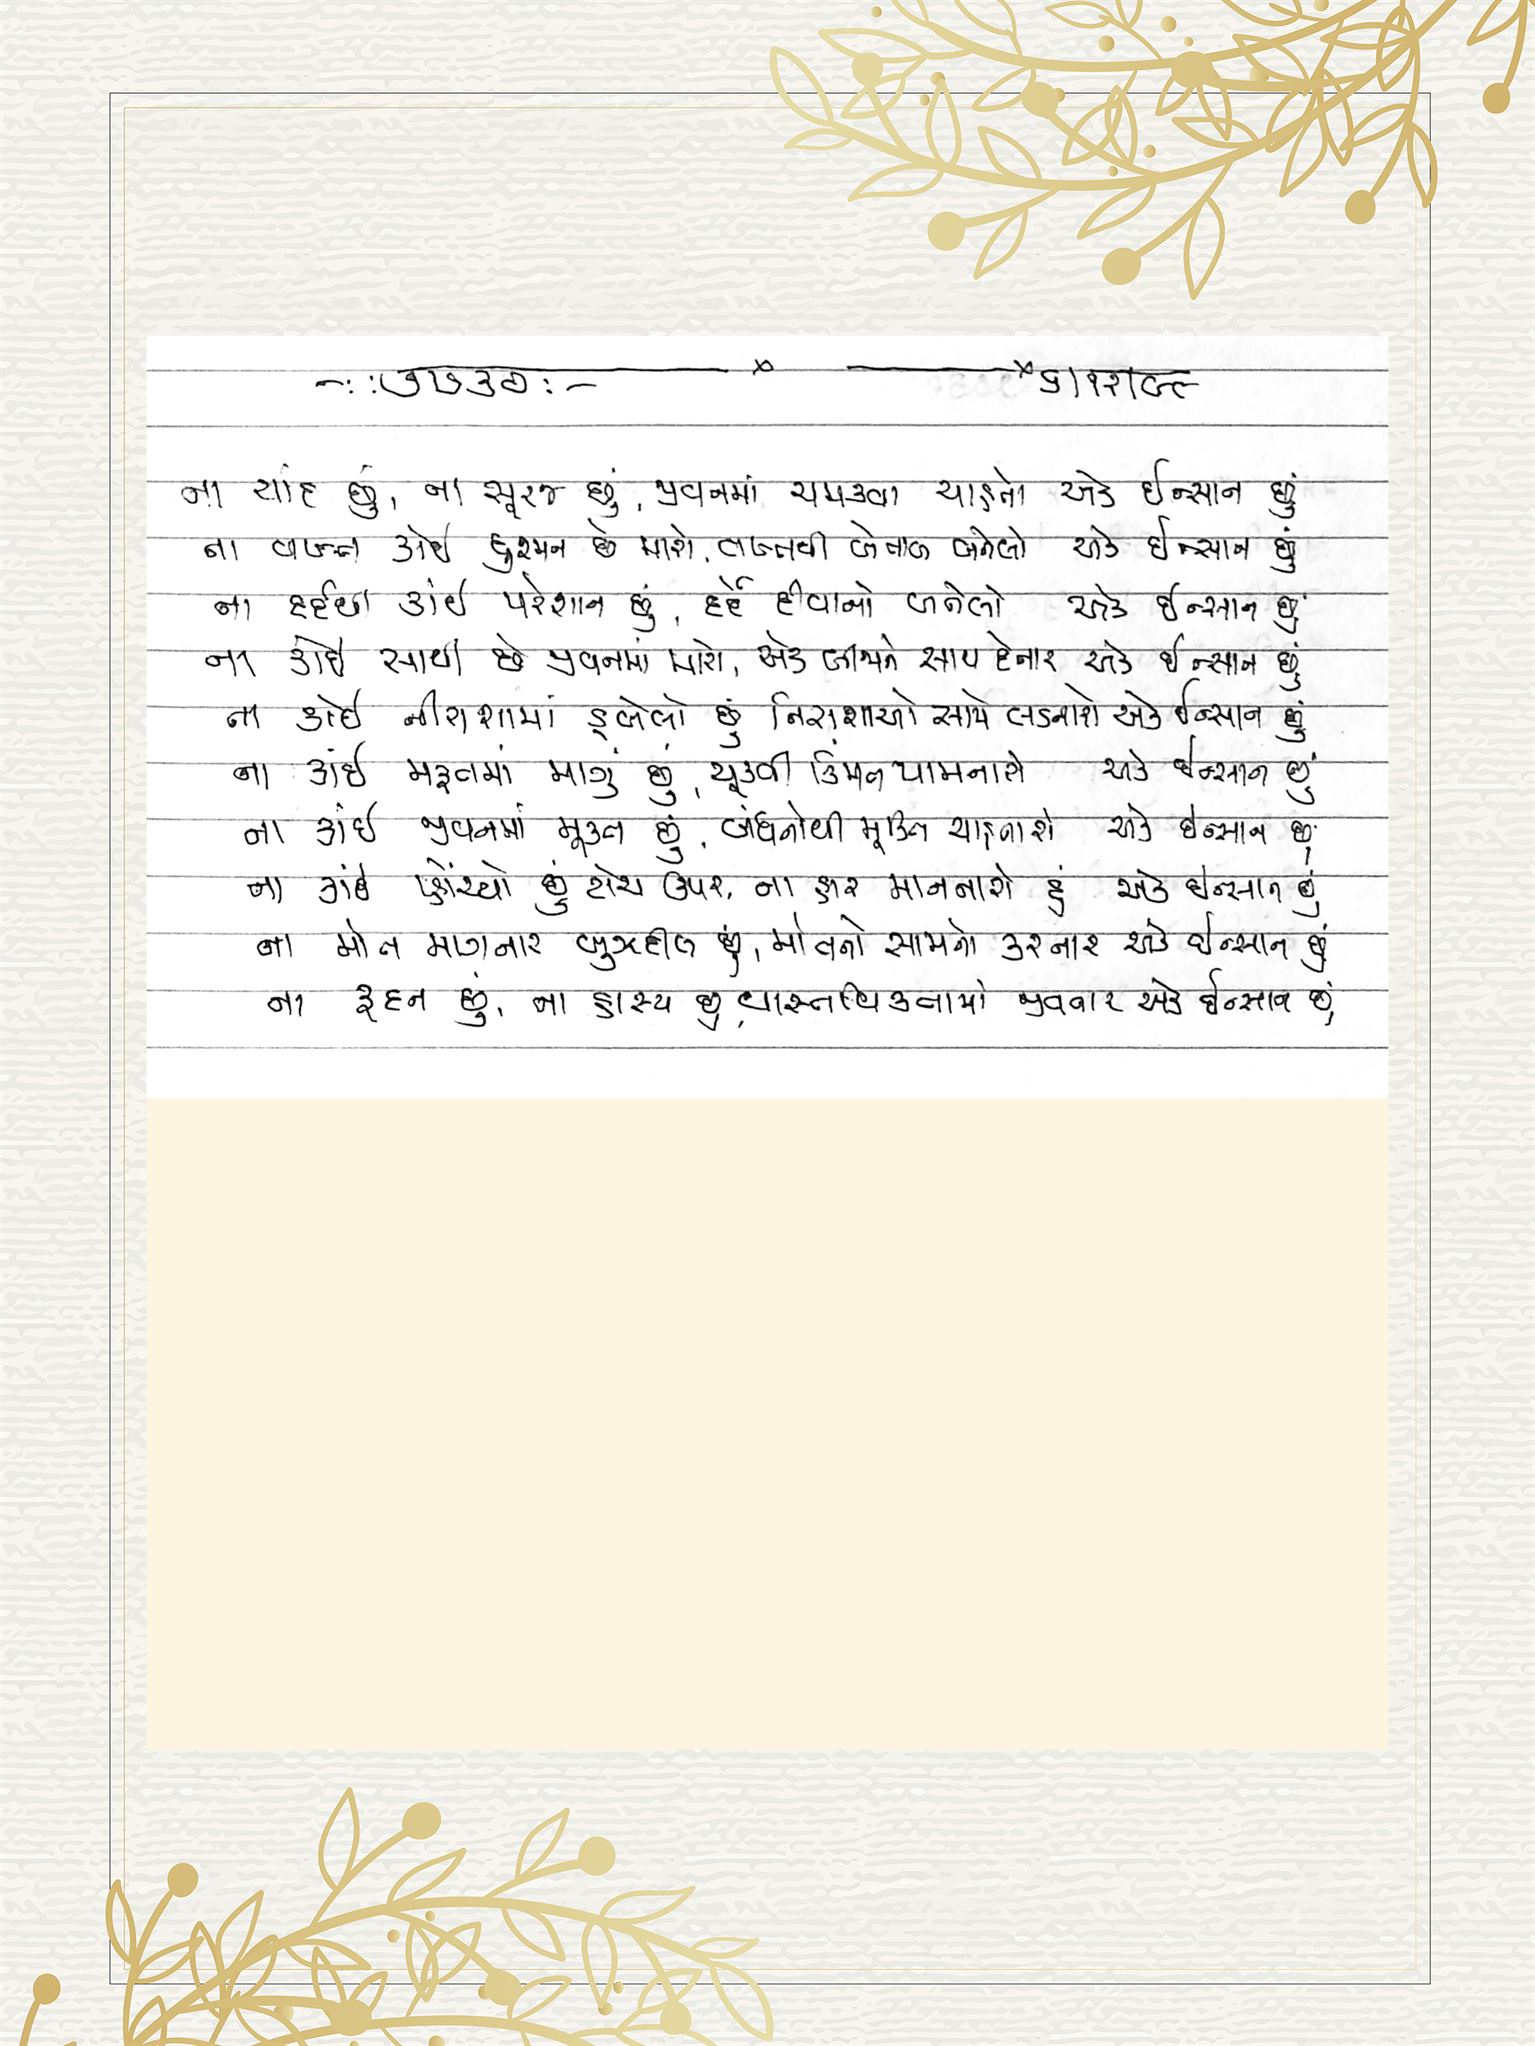 ના ચાંદ છું, ના સૂરજ છું, જીવનમાં ચમકવા ચાહતો એક ઈન્સાન છું
ના વખ્ત કોઈ દુશ્મન છે મારો, બનેલો એક ઈન્સાન છું
ના કાંઈ પરેશાન છું, દર્દે દીવાનો બનેલો એક ઈન્સાન છું
ના કોઈ સાથી છે જીવનમાં મારો, એક બીજાને સાથ દેનાર એક ઈન્સાન છું
ના કોઈ નીરાશામાં ડૂબેલો છું નિરાશાઓ સામે લડનારો એક ઈન્સાન છું
ના કાંઈ મફતમાં માગું છું, ચૂકવી કિંમત પામનારો એક ઈન્સાન છું
ના કાંઈ જીવનમાં મૂક્ત છું, બંધનોથી મૂક્તિ ચાહનારો એક ઈન્સાન છું
ના કાંઈ પહોંચ્યો છું ટોચ ઉપર, ના હાર માનનારો હું એક ઈન્સાન છું
ના મોત માગનાર બુઝદીલ છું, મોતનો સામનો કરનાર એક ઈન્સાન છું
ના રૂદન છું, ના હાસ્ય છું, વાસ્તવિકતામાં જીવનાર એક ઈન્સાન છું